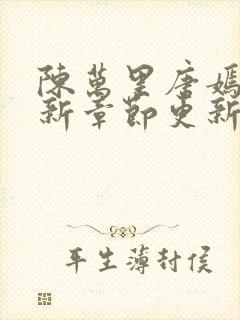 陳萬里唐嫣
新章節更新
平生薄封侯